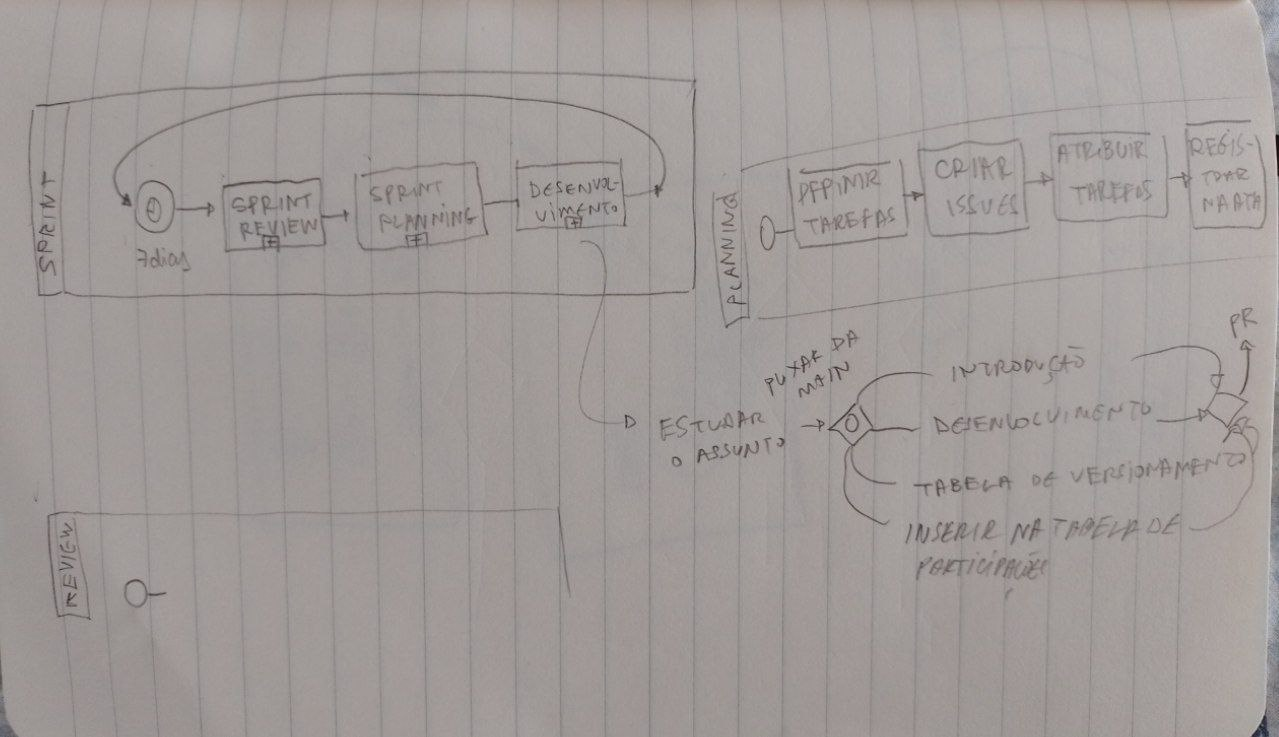 SPRINT
7 dias
SPRINT
REVIEW
SPRINT
PLANNING
DESENVOL-
VIMENTO
PLANNING
DEFINIR
TAREFAS
CRIAR
ISSUES
ATRIBUIR
TAREFAS
REGIS-
TRAR
NA ATA
ESTUDAR
O ASSUNTO
PUXAR DA
MAIN
INTRODUÇÃO
DESENVOLVIMENTO
TABELA DE VERSIONAMENTO
INSERIR NA TABELA DE
PARTICIPAÇÕES
PR
REVIEW